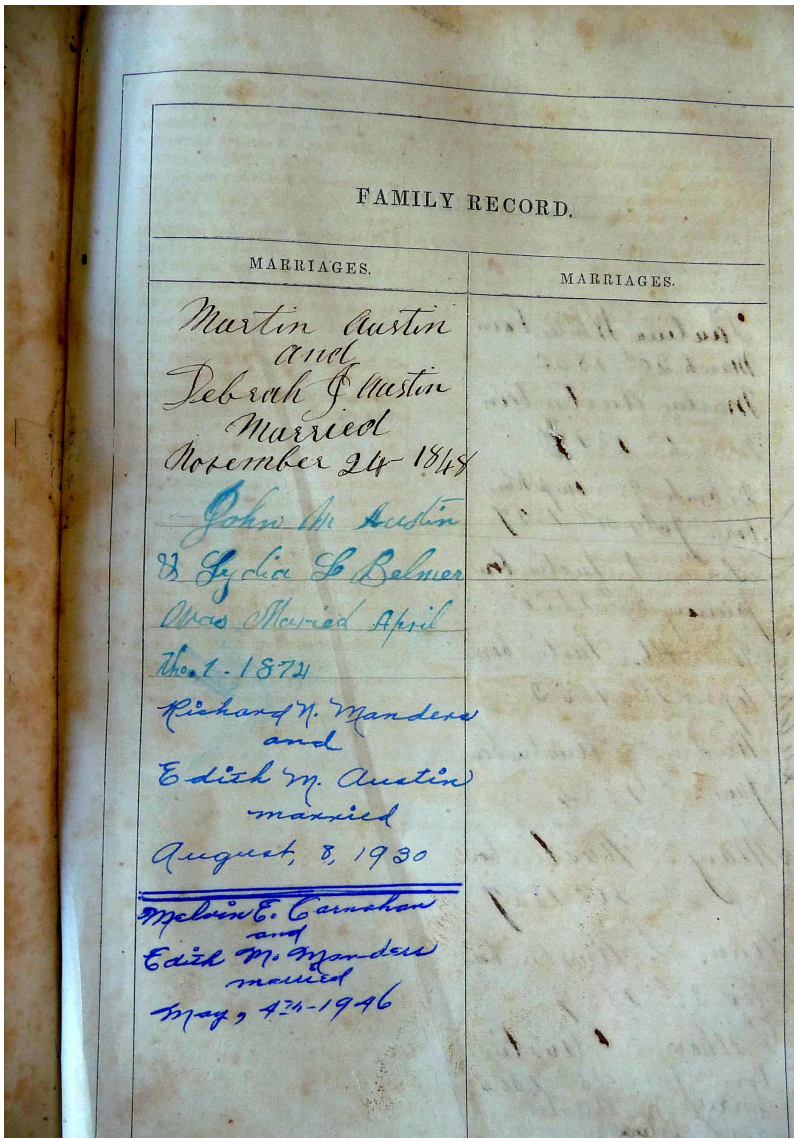 FAMILY RECORD.
MARRIAGES.
MARRIAGES.
Martin Austin
and
Debrah J Austin
Married
November 24 1848
John M Austin
& Lydia L Belmer
Was Maried April
The. 1 - 1872
Richard N. Manders
and
Edith M. Austin
married
August, 8, 1930
Melvin E. Carnahan
and
Edith M. Manders
married
May, 4th-1946